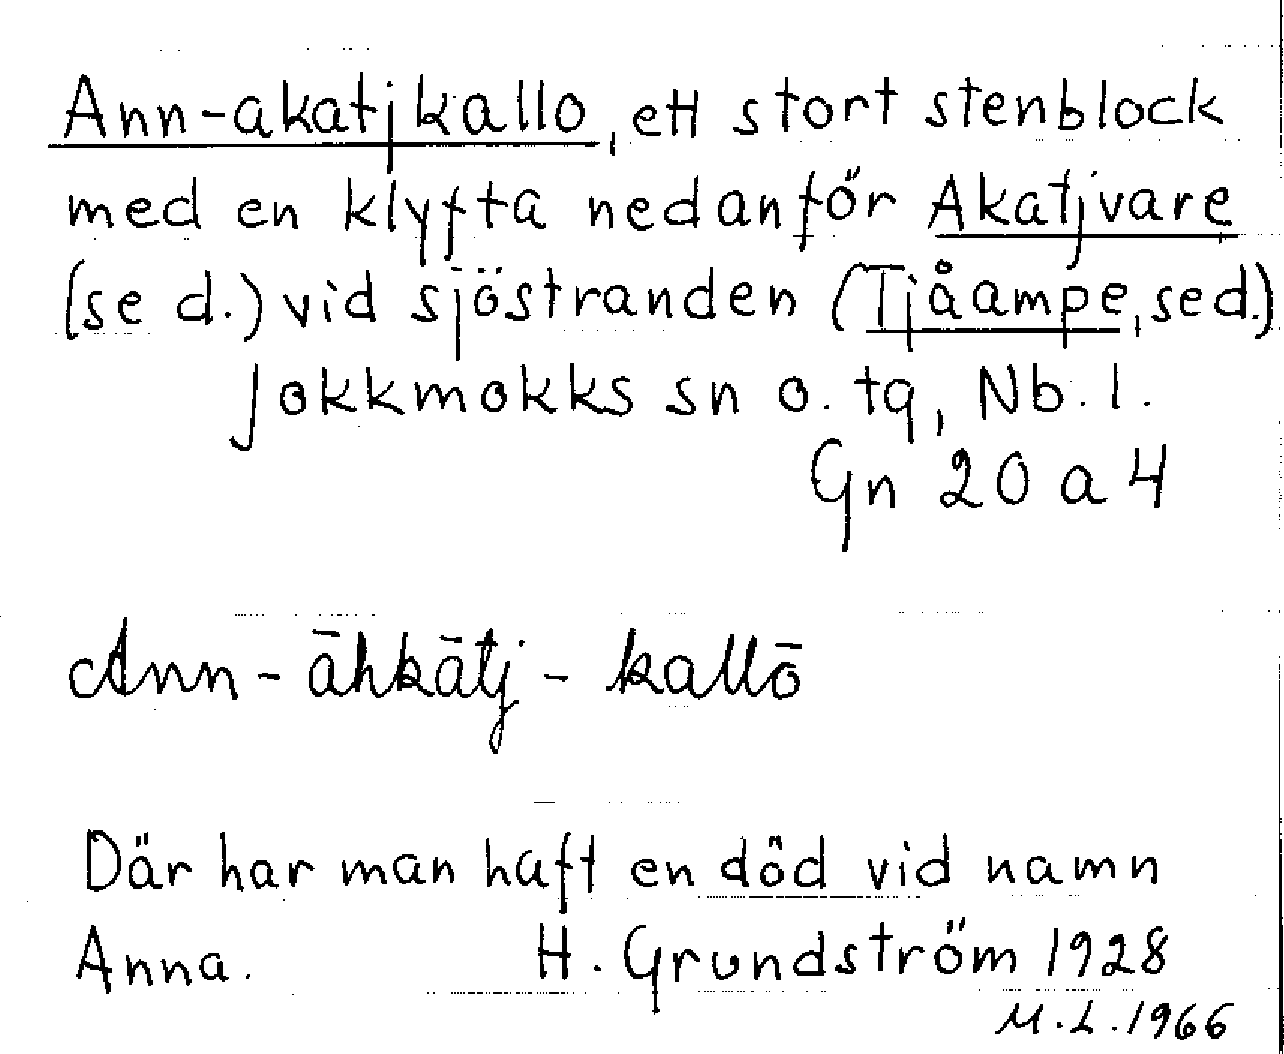 Ann-akatjkallo, ett stort stenblock
med en klyfta nedanför Akatjvare
(se d.) vid sjöstranden (Tjåampe, se d.)
Jokkmokks sn o. tg, Nb. l.
Gn 20 a 4
Ann - āhkātj - kallō
Där har man haft en död vid namn
Anna. H. Grundström 1928
M.L. 1966